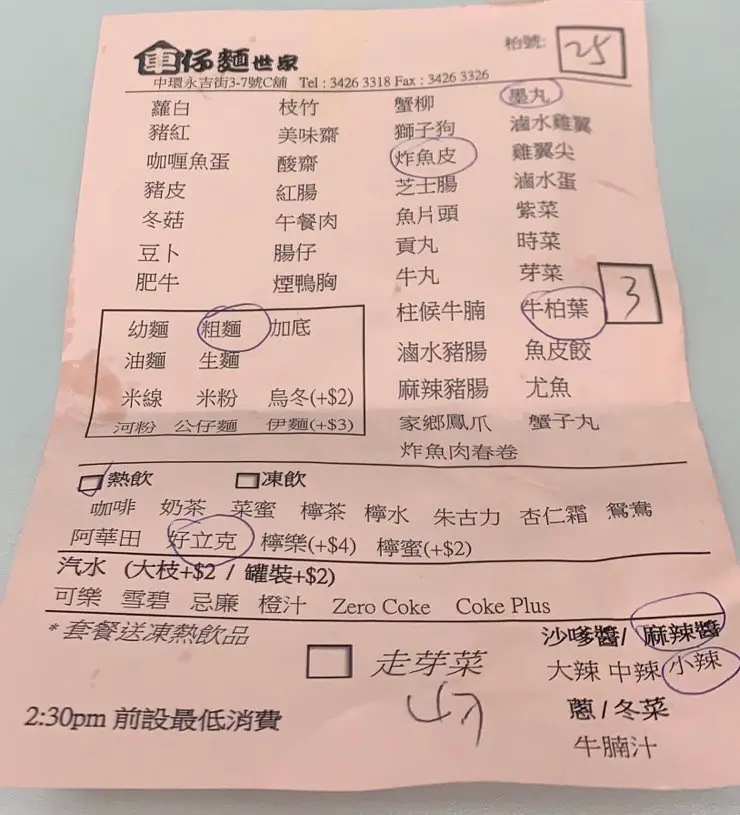 車仔麵世家
枱號: 25
中環永吉街3-7號C舖 Tel : 3426 3318 Fax : 3426 3326
蘿白 枝竹 蟹柳 墨丸
豬紅 美味齋 獅子狗 滷水雞翼
咖喱魚蛋 酸齋 炸魚皮 雞翼尖
豬皮 紅腸 芝士腸 滷水蛋
冬菇 午餐肉 魚片頭 紫菜
豆卜 腸仔 貢丸 時菜
肥牛 煙鴨胸 牛丸 芽菜
柱侯牛腩 牛柏葉 3
滷水豬腸 魚皮餃
麻辣豬腸 尤魚
家鄉鳳爪 蟹子丸
炸魚肉春卷
幼麵 粗麵 加底
油麵 生麵
米線 米粉 烏冬(+$2)
河粉 公仔麵 伊麵(+$3)
熱飲 凍飲
咖啡 奶茶 菜蜜 檸茶 檸水 朱古力 杏仁霜 鴛鴦
阿華田 好立克 檸樂(+$4) 檸蜜(+$2)
汽水 (大枝+$2 / 罐裝+$2)
可樂 雪碧 忌廉 橙汁 Zero Coke Coke Plus
* 套餐送凍熱飲品
走芽菜
2:30pm 前設最低消費
沙嗲醬/ 麻辣醬
大辣 中辣 小辣
蔥 / 冬菜
牛腩汁